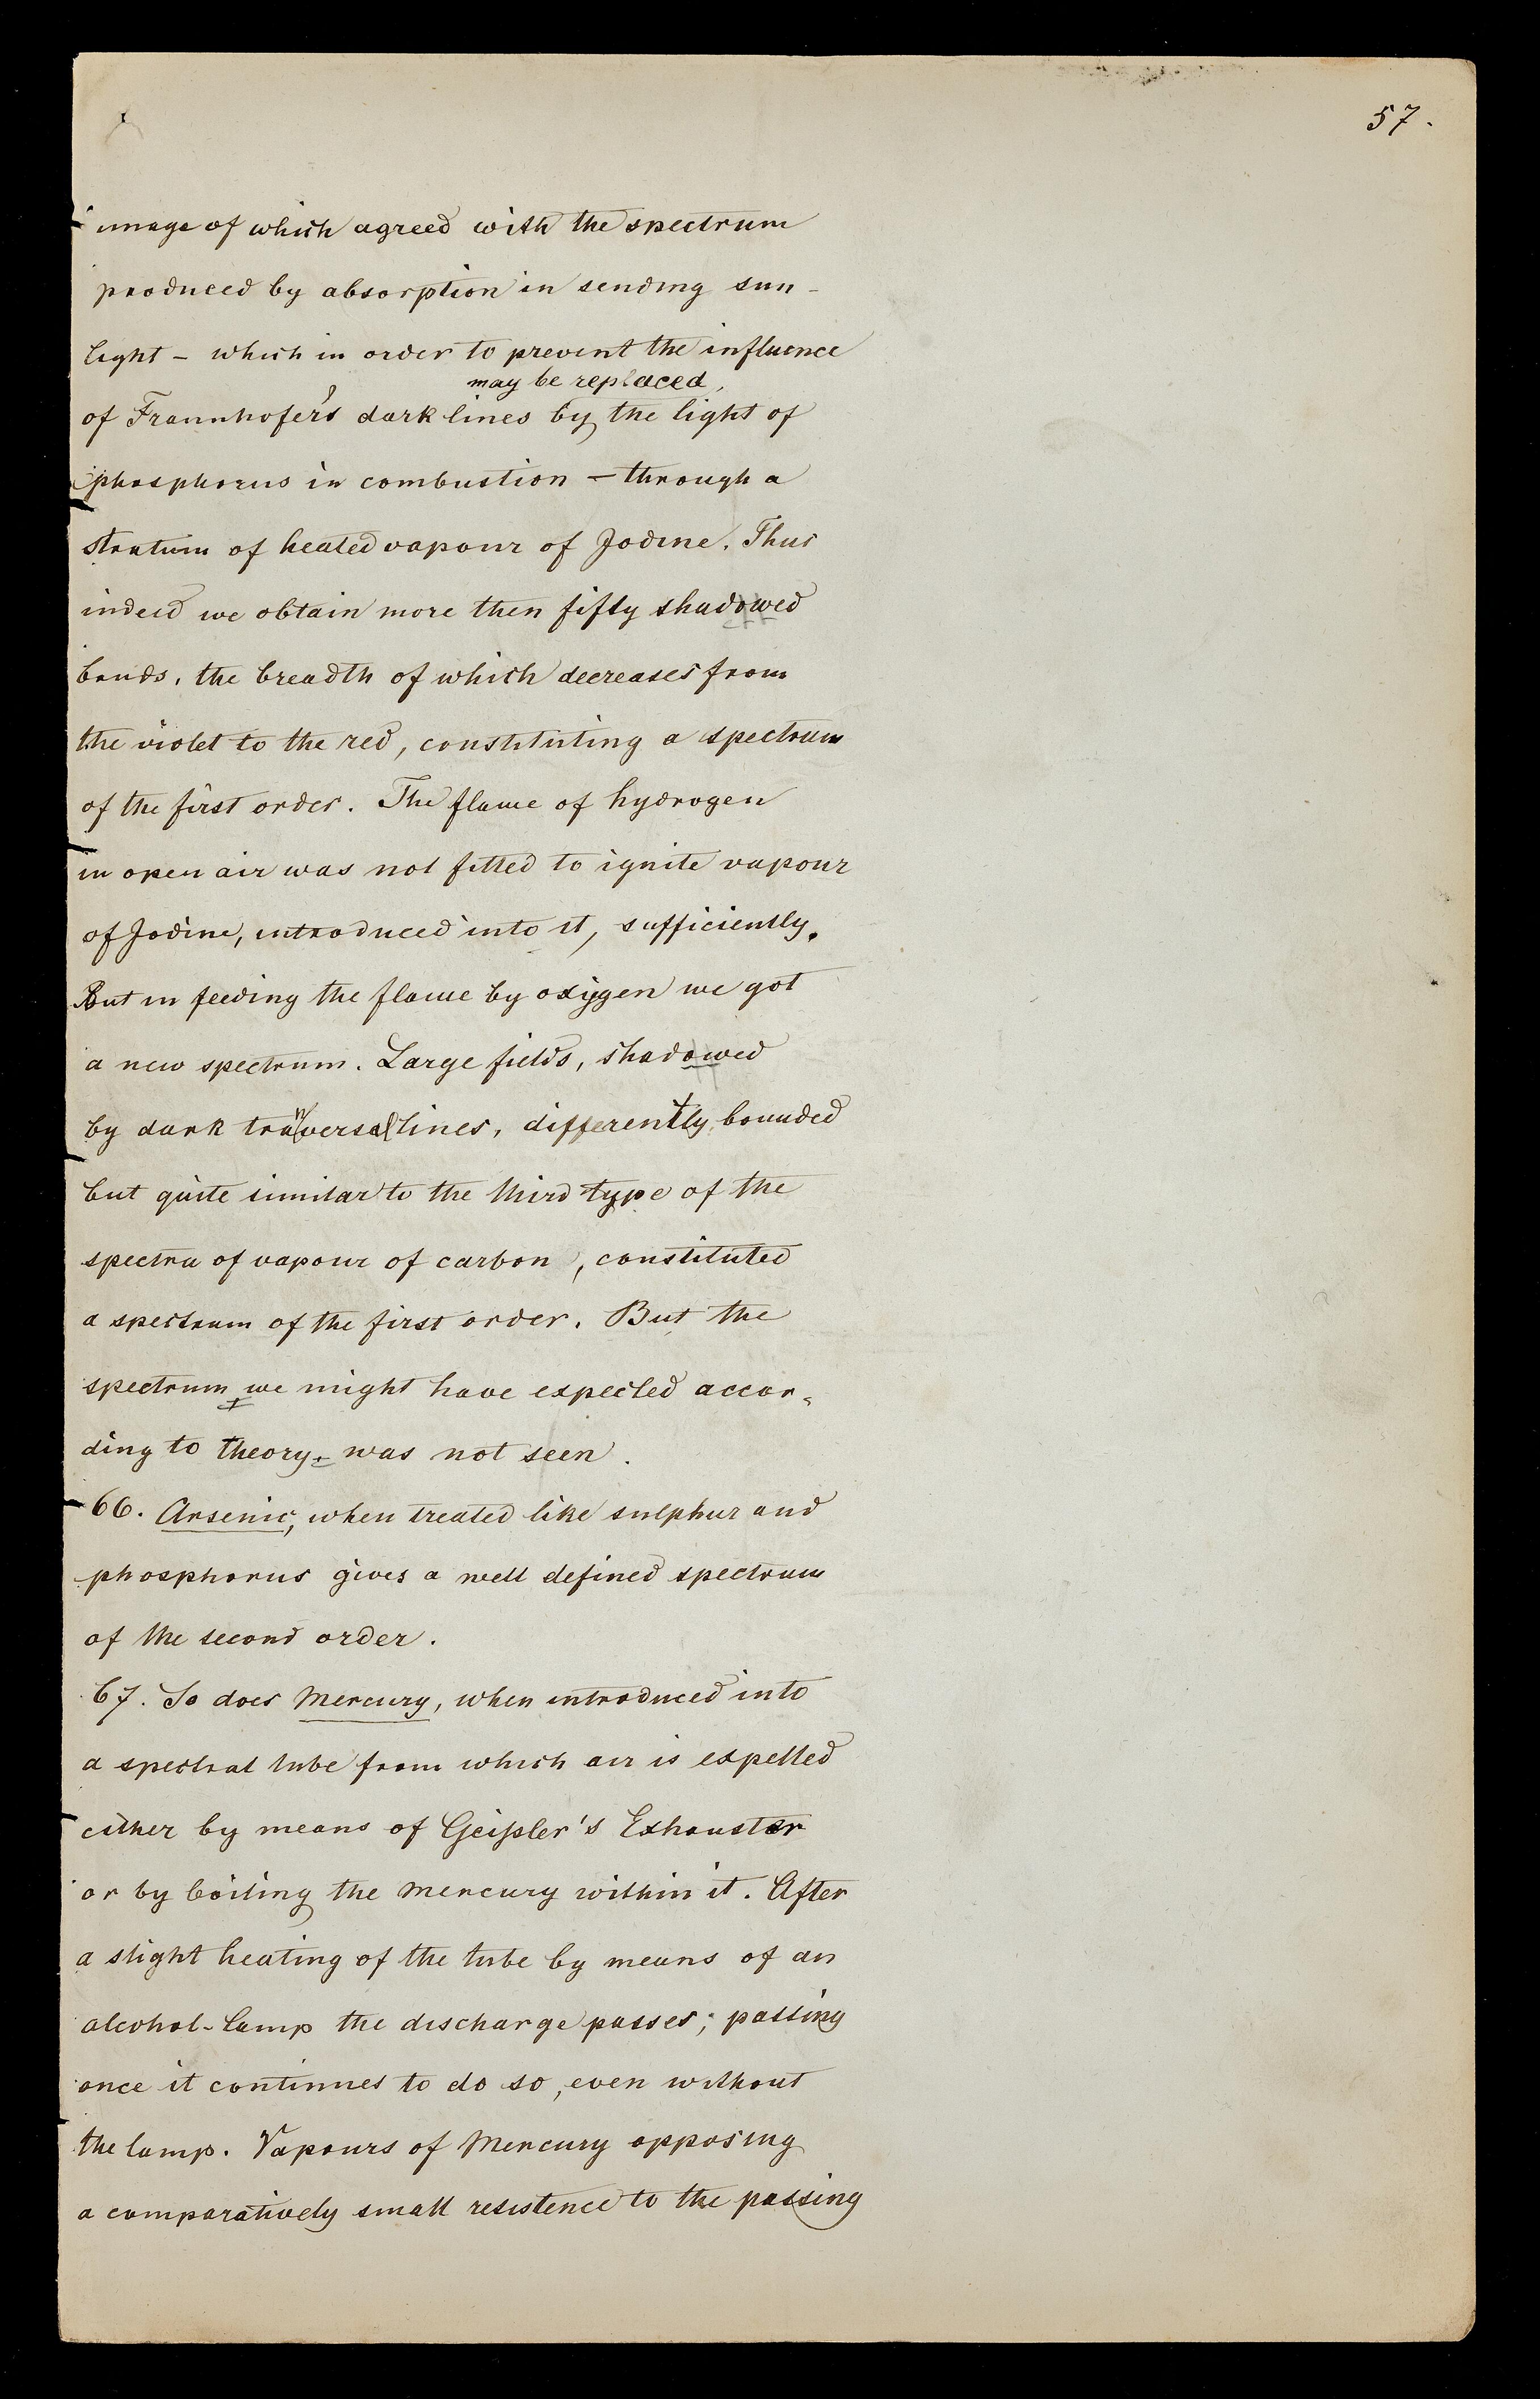 57.
image of which agreed with the spectrum
produced by absorption in sending sun-
light – which in order to prevent the influence
may be replaced,
of Fraunhofer's dark lines by the light of
phosphorus in combustion – through a
stratum of heated vapour of Jodine. Thus
indeed we obtain more then fifty shadowed
bands, the breadth of which decreases from
the violet to the red, constituting a spectrum
of the first order. The flame of hydrogen
in open air was not fitted to ignite vapour
of Jodine, introduced into it, sufficiently.
But in feeding the flame by oxygen we got
a new spectrum. Large fields, shadowed
by dark tranversal lines, differently bounded
but quite similar to the third type of the
spectra of vapour of carbon, constituted
a spectrum of the first order. But the
spectrum, we might have expected accor-
ding to theory, was not seen.
66. Arsenic, when treated like sulphur and
phosphorus gives a well defined spectrum
of the second order.
67. So does Mercury, when introduced into
a spectral tube from which air is expelled
either by means of Geißler's Exhauster
or by boiling the Mercury within it. After
a slight heating of the tube by means of an
alcohol-lamp the discharge passes; passing
once it continues to do so, even without
the lamp. Vapours of Mercury opposing
a comparatively small resistence to the passing